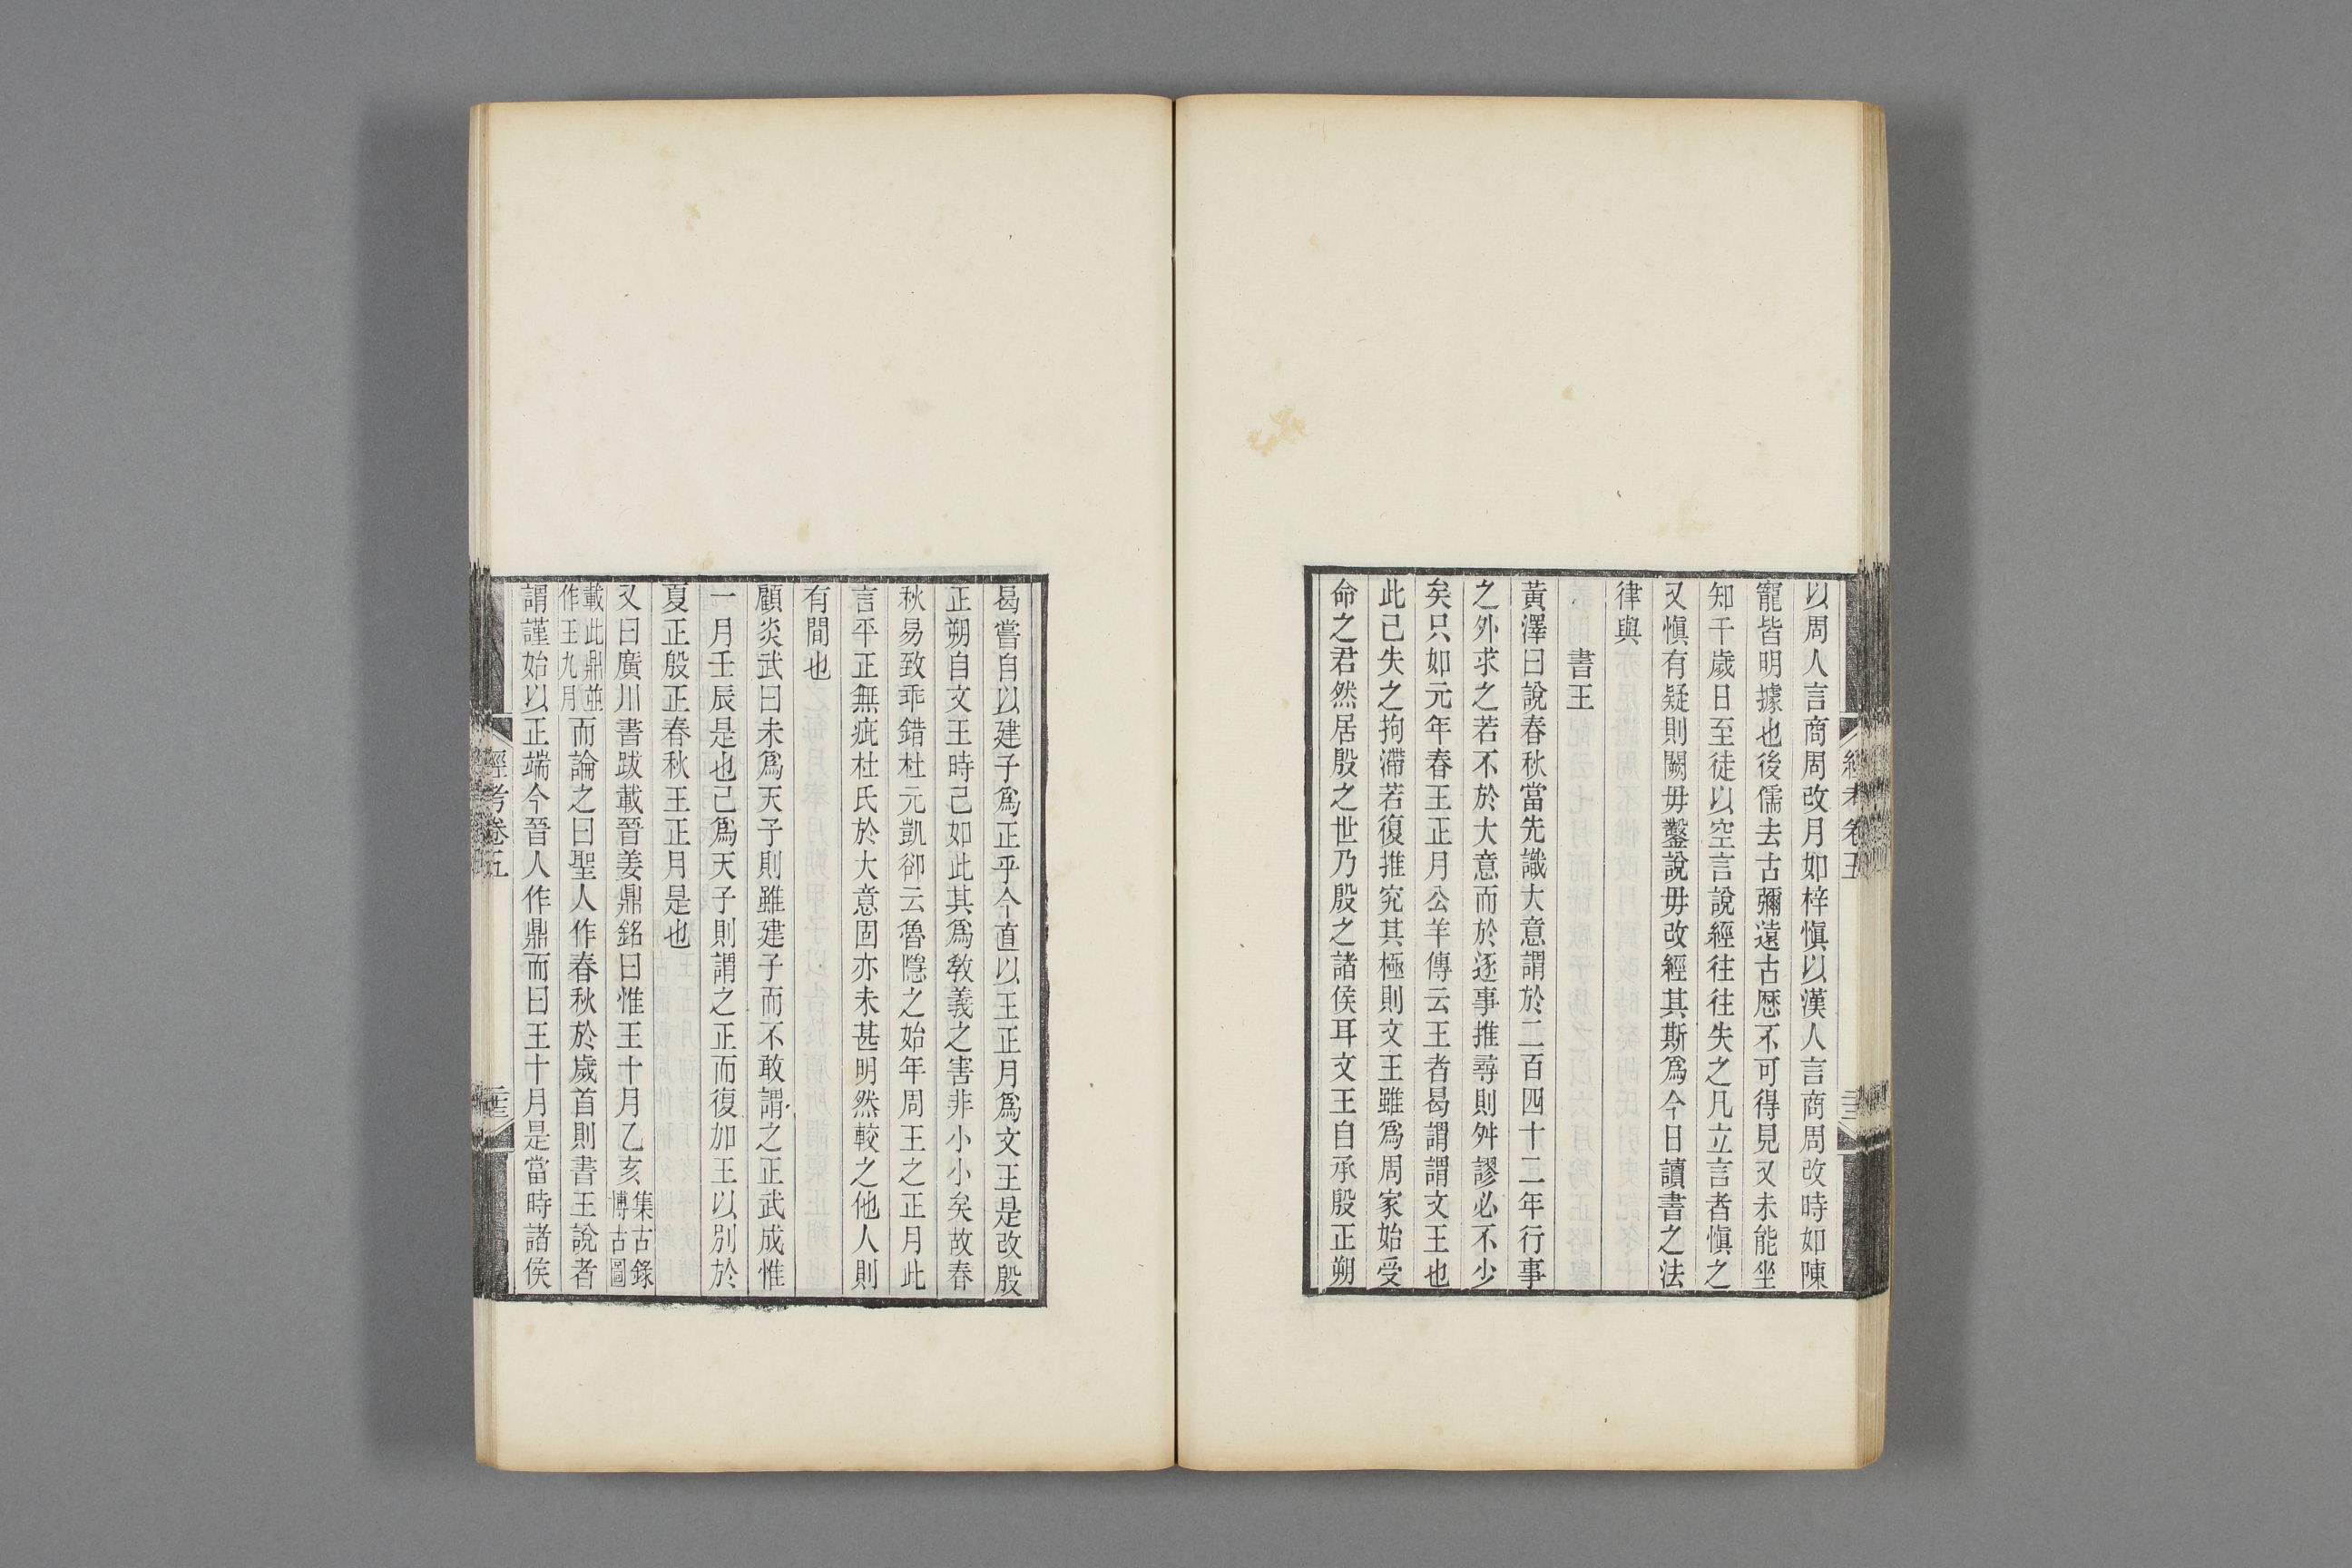 以周人言商周改月如梓愼以漢人言商周改時如陳
寵皆明據也後儒去古彌遠古厯不可得見又未能坐
知千歲日至徒以空言說經往往失之凡立言者愼之
又愼有疑則闕毋鑿說毋改經其斯爲今日讀書之法
律與
書王
黃澤曰說春秋當先識大意謂於二百四十二年行事
之外求之若不於大意而於逐事推尋則舛謬必不少
矣只如元年春王正月公羊傳云王者曷謂謂文王也
此已失之拘滯若復推究其極則文王雖爲周家始受
命之君然居殷之世乃殷之諸侯耳文王自承殷正朔
曷嘗自以建子爲正乎今直以王正月爲文王是改殷
正朔自文王時已如此其爲敎義之害非小小矣故春
秋易致乖錯杜元凱卻云魯隱之始年周王之正月此
言平正無疵杜氏於大意固亦未甚明然較之他人則
有間也
顧炎武曰未爲天子則雖建子而不敢謂之正武成惟
一月壬辰是也已爲天子則謂之正而復加王以別於
夏正殷正春秋王正月是也
又曰廣川書跋載晉姜鼎銘曰惟王十月乙亥集古錄博古圖
載此鼎並作王九月而論之曰聖人作春秋於歲首則書王說者
謂謹始以正端今晉人作鼎而曰王十月是當時諸侯
經考卷五